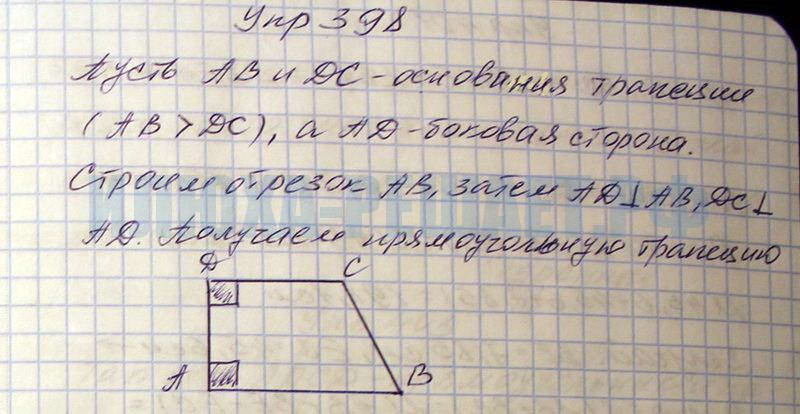 Упр 398
Пусть AB и DC - основания трапеции
(AB > DC), а AD - боковая сторона.
Строим отрезок AB, затем AD⊥AB, DC⊥
AD. Получаем прямоугольную трапецию
D C
A B